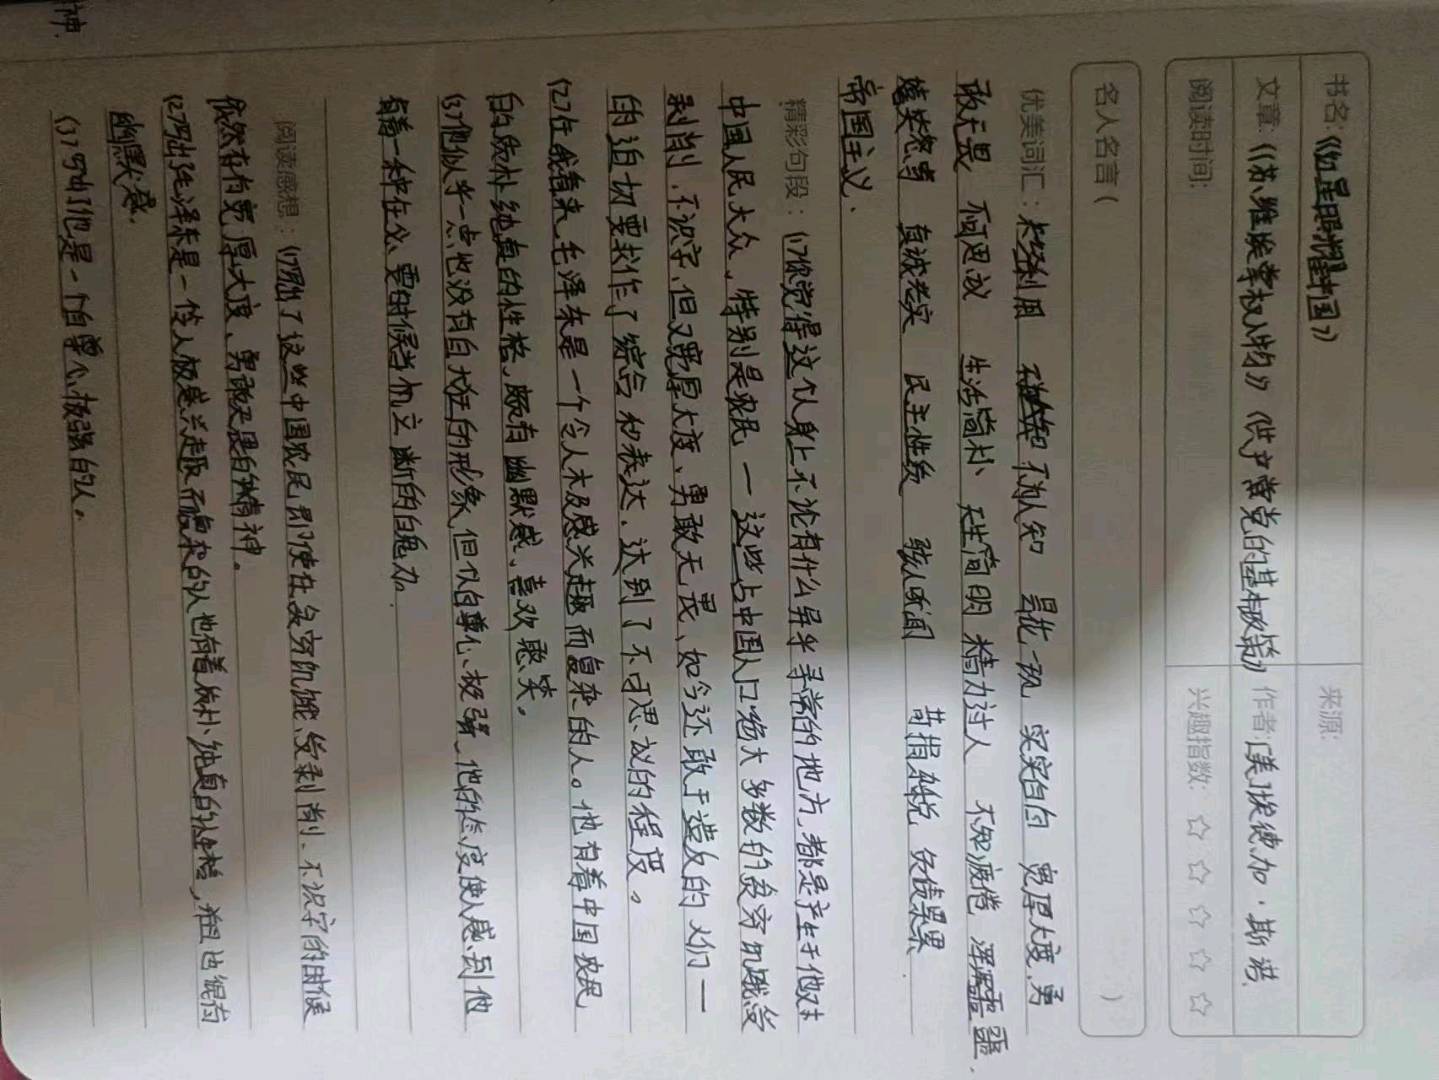 神.
书名:《红星照耀中国》 来源:
文章:《苏维埃掌权人物》《共产党的基本政策》 作者:[美]埃德加·斯诺
阅读时间: 兴趣指数: ☆ ☆ ☆ ☆ ☆
名人名言( )
优美词汇: 利用 不为人知 昙花一现 实实白白 宽厚大度 勇
敢无畏 不可思议 生活简朴 天生简明 精力过人 不知疲倦
真诚老实 民主性质 骇人听闻 苛捐杂税 负债累累
帝国主义.
精彩句段: (1)你觉得这个人身上不论有什么异乎寻常的地方,都是产生于他对
中国人民大众,特别是农民——这些占中国人口绝大多数的贫穷饥饿受
剥削、不识字,但又宽厚大度、勇敢无畏、如今还敢于造反的人们——
的迫切要求作了综合和表达,达到了不可思议的程度。
(2)在我看来,毛泽东是一个令人极感兴趣而复杂的人。他有着中国农民
的质朴纯真的性格,颇有幽默感,喜欢憨笑。
(3)他似乎一点也没有自大狂的形象,但个人自尊心极强,他的态度使人感到他
有着一种在必要时候当机立断的魄力。
阅读感想: (1)写出了这些中国农民即使在贫穷饥饿、受剥削、不识字的时候
依然有着宽厚大度、勇敢无畏的精神。
(2)写出毛泽东是一位令人极感兴趣而复杂的人也有着质朴纯真的性格,并且也很有
幽默感.
(3)写出了他是一个自尊心极强的人。